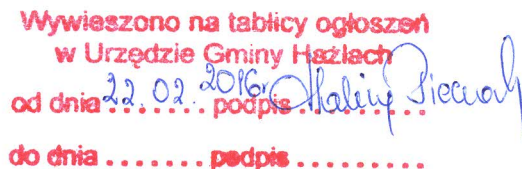 Wywieszono na tablicy ogłoszeń
w Urzędzie Gminy Hażlach
od dnia 22.02.2016r podpis Halina
do dnia ........ podpis .........